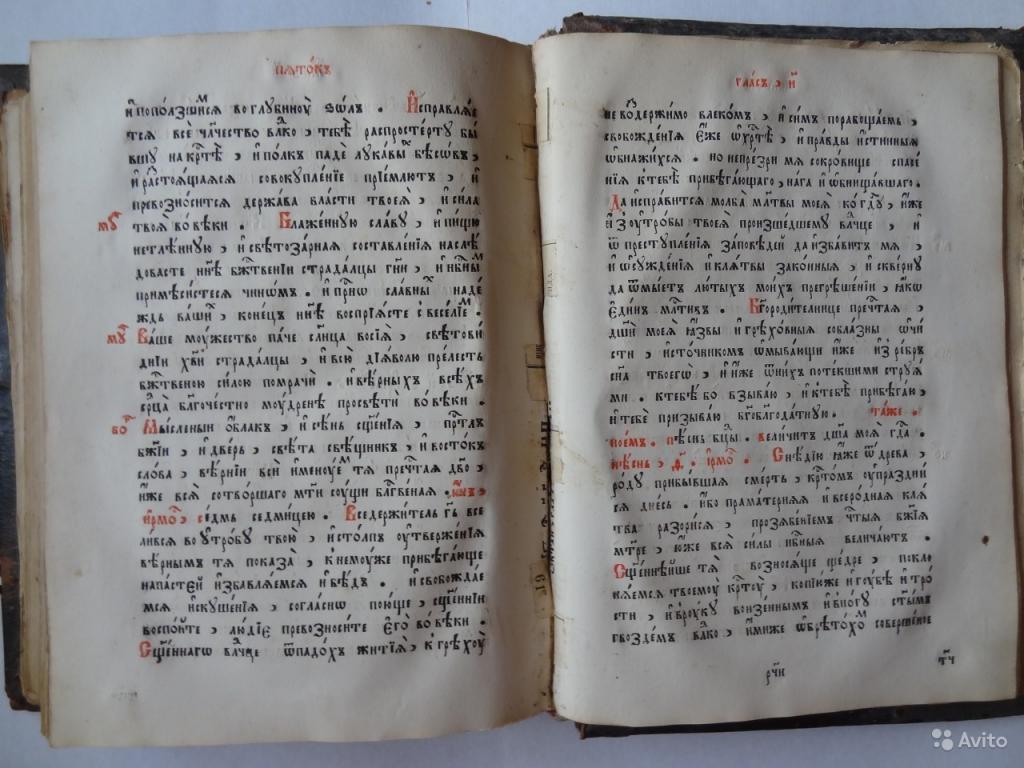 пѧто́къ
и҆ поползши́сѧ во глубинꙋ̀ ѕѡ́лъ . И҆справлѧ́е
тсѧ всѐ чл҃чество влⷣко , тебѣ̀ распросте́ртꙋ бы́
вшꙋ на крⷭ҇тѣ̀ , и҆ по́лкъ падѐ лꙋка́вы бѣсѡ́въ ,
и҆ растоѧ́щаѧсѧ совокꙋпле́нїе прїе́млютъ , и҆
превозно́ситсѧ держа́ва вла́сти твоеѧ̀ , и҆ си́ла
твоѧ̀ во вѣ́ки . Блаже́ннꙋю сла́вꙋ , и҆ пи́щꙋ
нетлѣ́ннꙋю , и҆ свѣтоза́рнаѧ составле́нїѧ наслѣ́
довасте нн҃ѣ бжⷭ҇твенїи страда́лцы гⷭ҇ни , и҆ нбⷭ҇ны
примѣси́стесѧ чино́мъ . и҆ при́снѡ сла́вныⷯ наде́
ждъ ва́шиⷯ , коне́цъ нн҃ѣ воспрїѧ́сте с весе́лїеⷨ .
Ва́ше мꙋ́жество па́че сл҃нца восїѧ̀ , свѣтови́
днїи хв҃ы страда́лцы , и҆ всю̀ дїѧ́волю пре́лесть
бжⷭ҇твеною си́лою помрачѝ . и҆ вѣ́рныхъ всѣ́хъ
срⷣца бл҃гоче́стно мꙋ́дренѣ просвѣтѝ во вѣ́ки .
Мы́сленыи ѻ҆́блакъ , и҆ сѣ́нь сщ҃е́нїѧ , прⷭ҇тлъ
бж҃їи , и҆ две́рь , свѣ́та свѣ́щникъ , и҆ восто́къ
сло́ва , вѣ́рнїи всѝ и҆менꙋ́еⷨ тѧ̀ пречⷭ҇таѧ дв҃о ,
и҆́же всѧ̀ сотво́ршаго мт҃и сꙋ́щи бл҃гве́наѧ .
і҆рмоⷭ҇ . се́дмь седми́цею . Вседержи́тель гдⷭ҇ь всели́
лисѧ во ᲂу҆тро́бꙋ твою̀ , и҆ сто́лпъ ᲂу҆твержде́нїѧ
вѣ́рнымъ тѧ̀ показа̀ , к немꙋ́же прибѣга́юще
напа́стей и҆збавлѧ́емсѧ и҆ бѣ́дъ . и҆ свобожда́е
мсѧ и҆скꙋше́нїѧ , согла́снѡ пою́ще , сщ҃е́ннїи
воспо́йте , лю́дїе превозноси́те є҆го̀ во вѣ́ки .
Сщ҃е́ннагѡ влⷣчце ѿпадо́хъ житїѧ̀ , к грѣхꙋ̀
гла́съ , и҃
не ᲂу҆держи́мо влеко́мъ , и҆ си́мъ порабоща́емь ,
свобожде́нїѧ є҆́же ѡ҆ хрⷭ҇тѣ̀ , и҆ пра́вды и҆́стинныѧ
ѡ҆бнажи́хсѧ . но не пре́зри мѧ сокро́вище спасе́
нїѧ к тебѣ̀ прибѣга́ющаго , на́га и҆ ѡ҆бнища́вшаго .
Да и҆спра́витсѧ молба̀ мл҃твы моеѧ̀ ко гдⷭ҇ꙋ , и҆́же
и҆з ᲂу҆тро́бы твоеѧ̀ произше́дшемꙋ влⷣчце , и҆
ѿ престꙋпле́нїѧ за́повѣдей да и҆зба́витъ мѧ ,
и҆ ѡ҆сꙋжде́нїѧ и҆ клѧ́твы зако́нныѧ , и҆ скве́рнꙋ
да ѿмы́етъ лю́тыхъ мои́хъ прегрѣше́нїи , ꙗ҆́кѡ
є҆ди́нъ млⷭ҇тивъ . Бг҃ороди́телнице пречⷭ҇таѧ ,
дш҃и моеѧ̀ ꙗ҆́звы и҆ грѣхо́вныѧ собла́зны ѡ҆чи́
сти , и҆сто́чникомъ ѡ҆мыва́ющи и҆́же и҆з ре́бръ
сн҃а твоегѡ̀ , и҆ и҆́же ѿ ни́хъ поте́кшими стрꙋѧ́
ми . к тебѣ́ бо взыва́ю , и҆ к тебѣ̀ прибѣга́ю ,
и҆ тебѐ призыва́ю бг҃облагода́тнꙋю . та́же .
пое́мъ . пѣ́снь бцⷣы . вели́читъ дш҃а моѧ̀ гдⷭ҇а .
пѣ́снь , ѳ҃ . і҆рмоⷭ҇ . Снѣ́дїю ꙗ҆́же ѿ дре́ва ,
ро́дꙋ прибы́вшаѧ сме́рть , крⷭ҇то́мъ ᲂу҆праздни́
сѧ дне́сь . и҆́бо прама́тернѧѧ и҆ всеро́днаѧ клѧ́
тва разори́сѧ , прозѧбе́нїемъ чⷭ҇тыѧ бж҃їѧ
мт҃ре , ю҆́же всѧ̀ си́лы нбⷭ҇ныѧ велича́ютъ .
Сщ҃е́ннѣйше тѧ̀ вознося́ще ще́дре , покла
нѧ́емсѧ твоемꙋ̀ крⷭ҇тꙋ̀ , копїю́ же и҆ гꙋ́бѣ и҆ тро́
сти , и҆ в рꙋ́кꙋ вонзе́ннымъ и҆ в но́гꙋ ст҃ы́мъ
гвозде́мъ влⷣко , и҆́миже ѡ҆брѣто́хоⷨ соверше́ное
рч҃и
тч҃
Avito